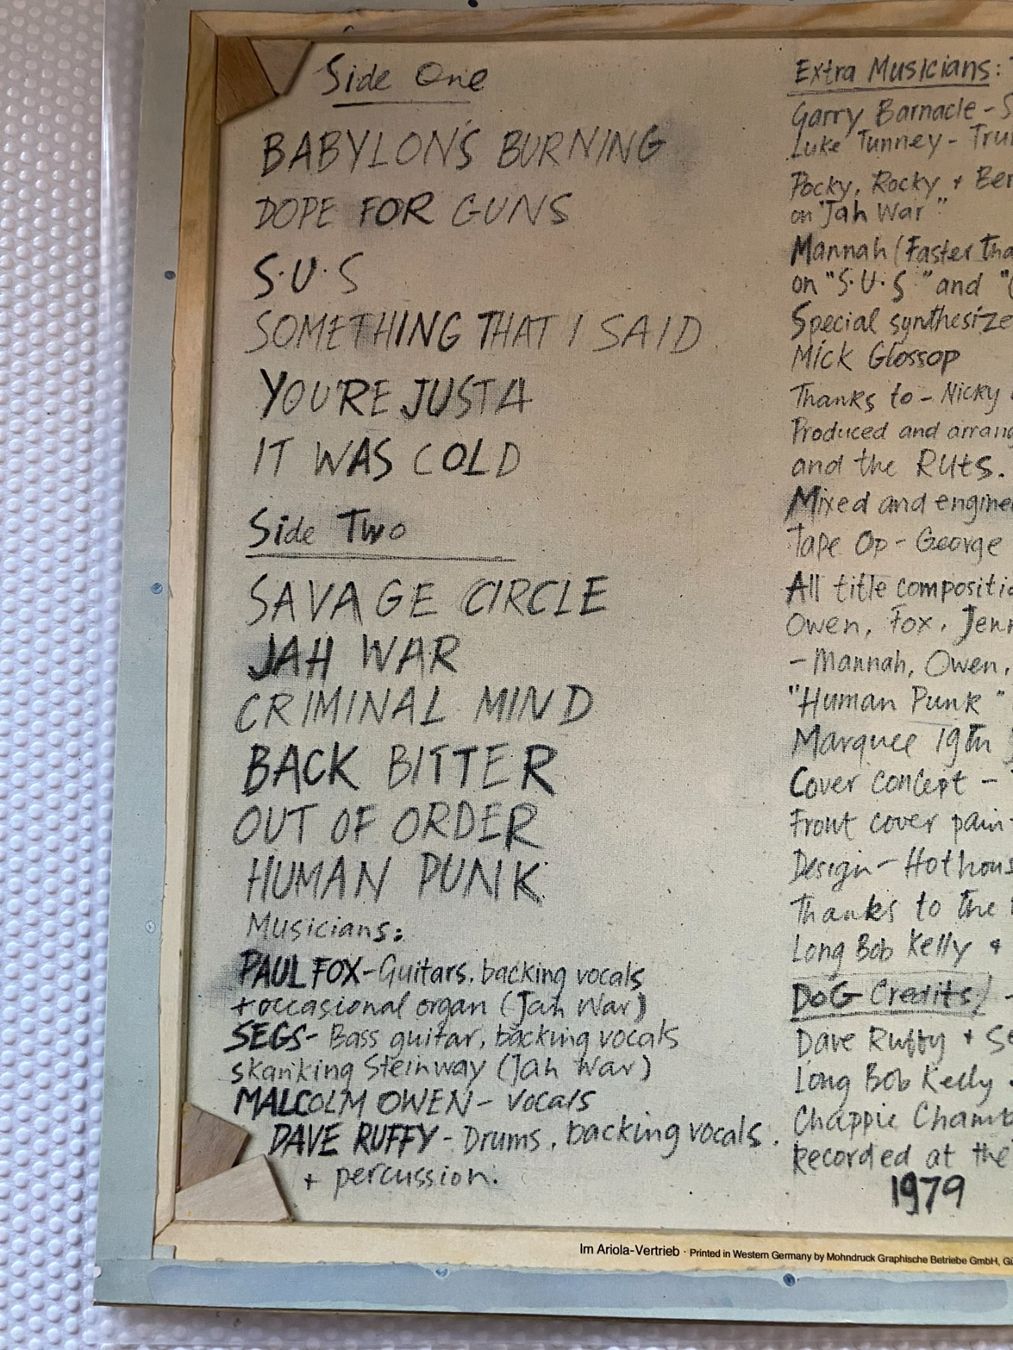 Side One
BABYLON'S BURNING
DOPE FOR GUNS
S.U.S
SOMETHING THAT I SAID
YOU'RE JUST A
IT WAS COLD
Side Two
SAVAGE CIRCLE
JAH WAR
CRIMINAL MIND
BACK BITTER
OUT OF ORDER
HUMAN PUNK
Musicians:
PAUL FOX-Guitars, backing vocals
+ occasional organ (Jah War)
SEGS- Bass guitar, backing vocals
skanking Steinway (Jah War)
MALCOLM OWEN- vocals
DAVE RUFFY - Drums, backing vocals.
+ percussion.
Extra Musicians:
Garry Barnacle - S
Luke Tunney - Tru
Pocky, Rocky + Ber
on "Jah War"
Mannah (Faster tha
on "S.U.S" and "
Special synthesize
Mick Glossop
Thanks to - Nicky
Produced and arran
and the Ruts.
Mixed and engine
Tape Op - George
All title compositio
Owen, Fox, Jenn
- Mannah, Owen,
"Human Punk"
Marquee 19th
Cover concept -
Front cover pain
Design - Hothous
Thanks to the
Long Bob Kelly +
DoG Credits/ -
Dave Ruffy + Se
Long Bob Kelly
Chappie Chamb
Recorded at the
1979
Im Ariola-Vertrieb · Printed in Western Germany by Mohndruck Graphische Betriebe GmbH, Gü